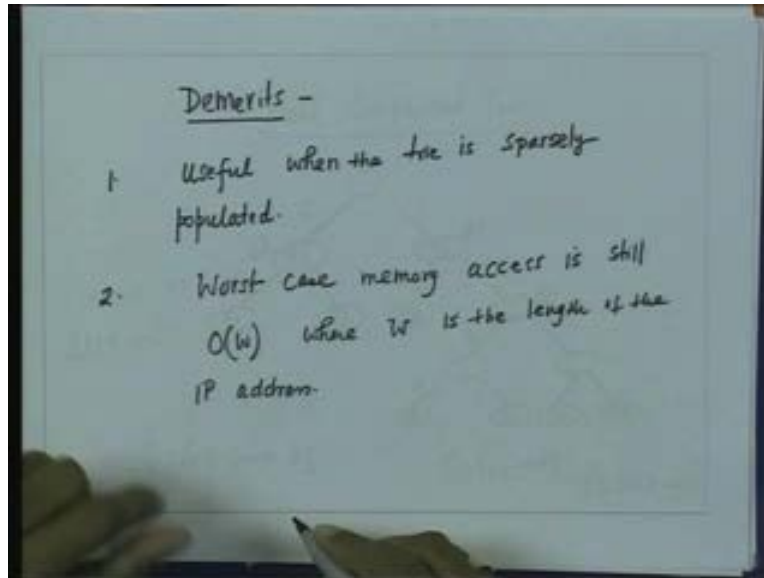 Demerits -
1. Useful when the trie is sparsely
populated.
2. Worst case memory access is still
O(W) where W is the length of the
IP address.